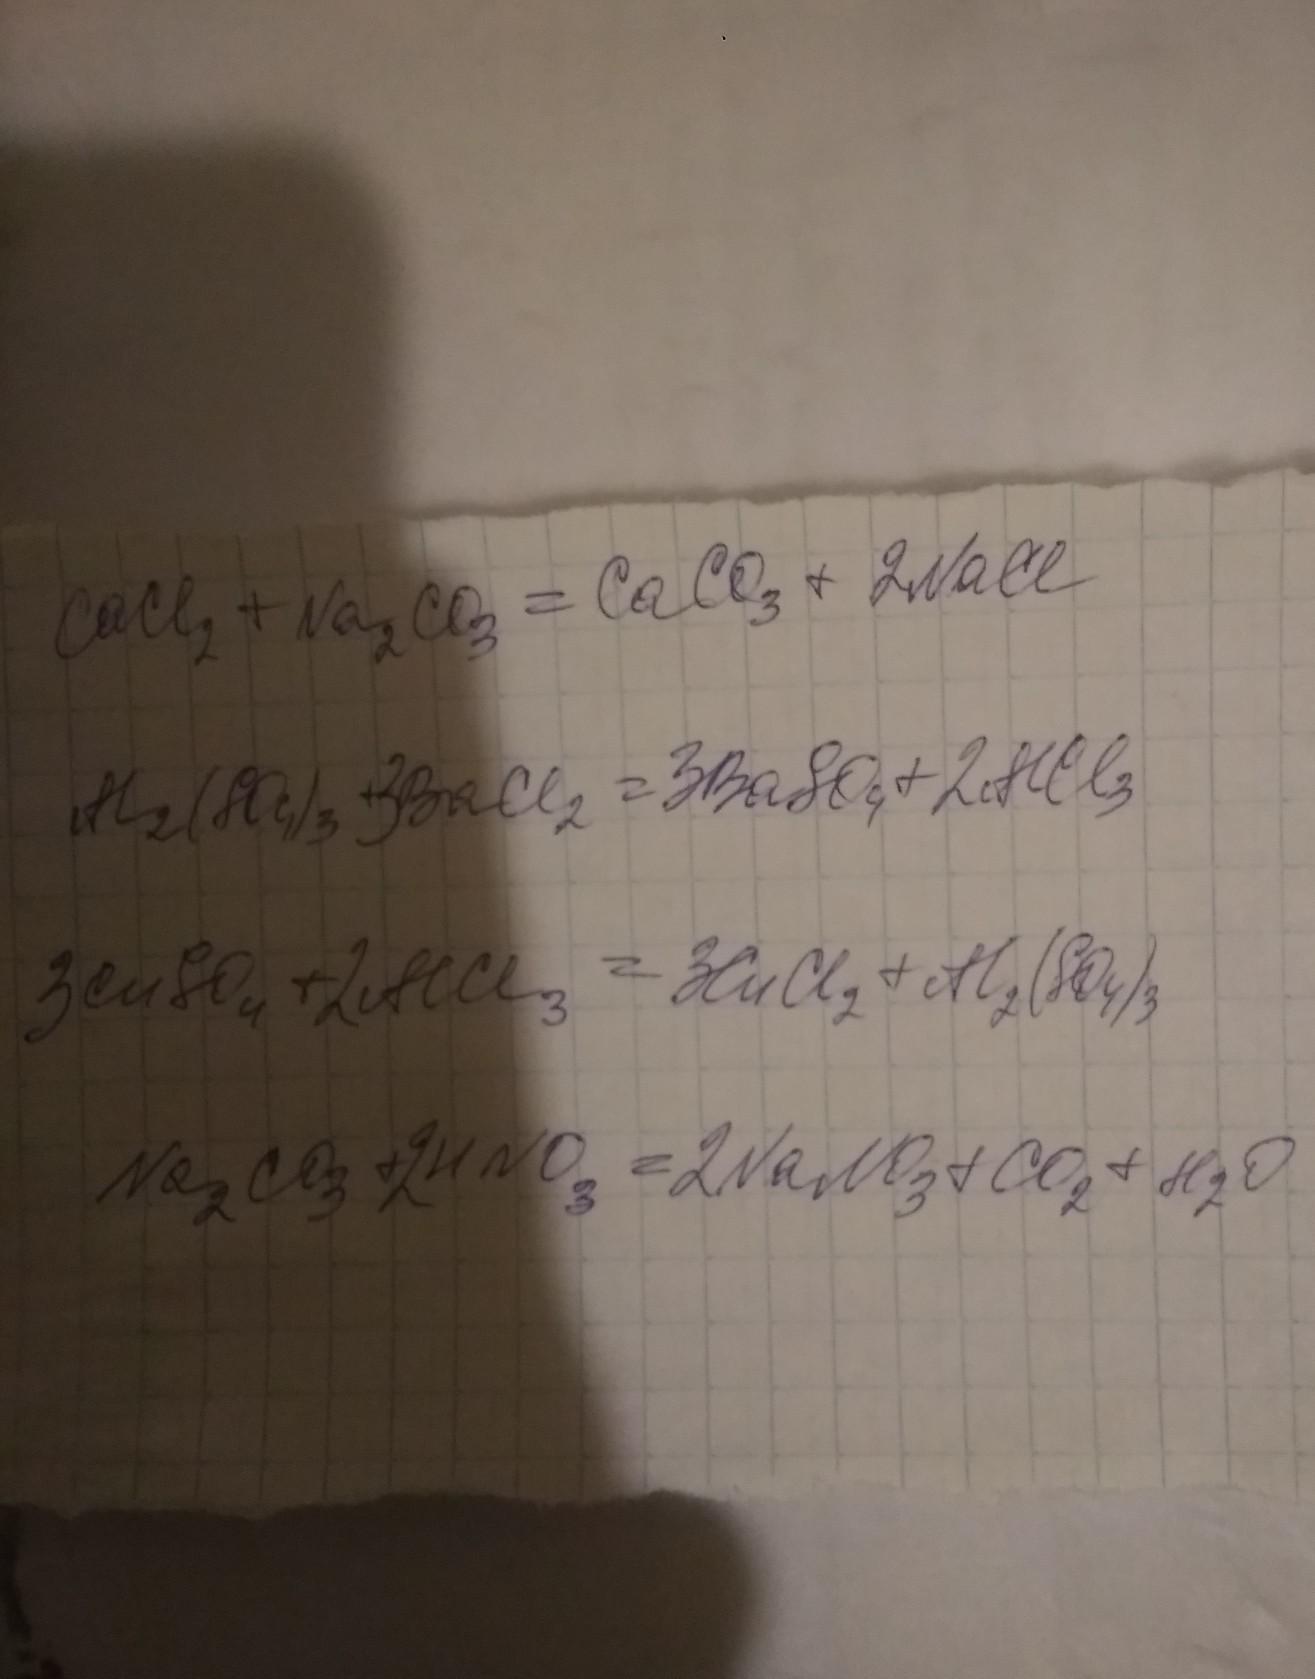 CaCl₂ + Na₂CO₃ = CaCO₃ + 2NaCl
Al₂(SO₄)₃ + 3BaCl₂ = 3BaSO₄ + 2AlCl₃
3CuSO₄ + 2AlCl₃ = 3CuCl₂ + Al₂(SO₄)₃
Na₂CO₃ + 2HNO₃ = 2NaNO₃ + CO₂ + H₂O